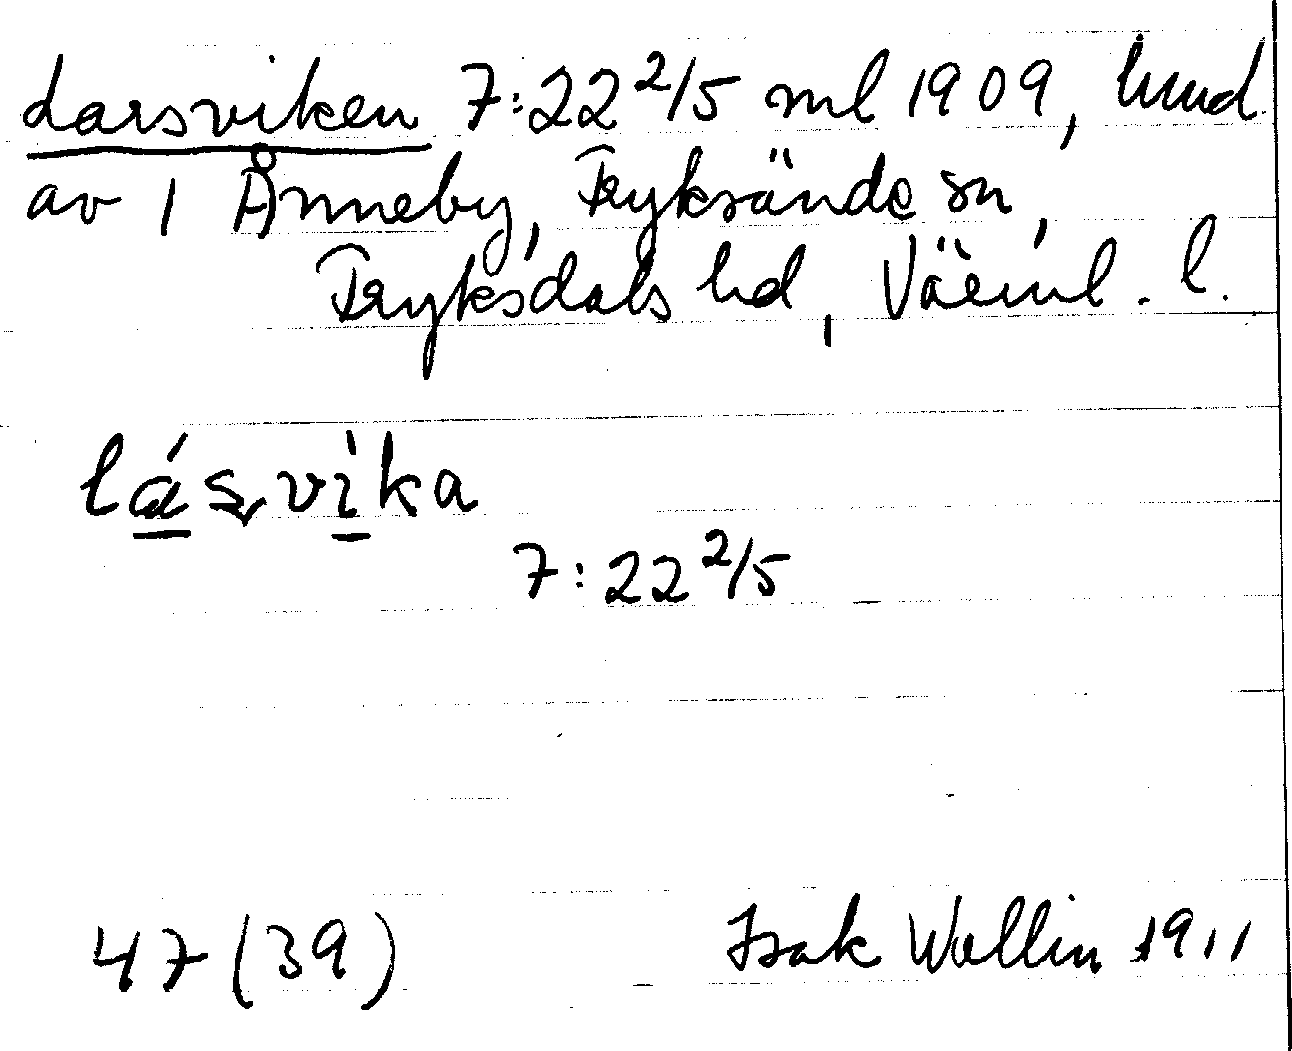 Larsviken 7:22 2/5 ml 1909, hmd.
av 1 Ånneby, Fryksände sn,
Fryksdals hd, Värml. l.
lásvika
7:22 2/5
47 (39) Isak Wallin 1911